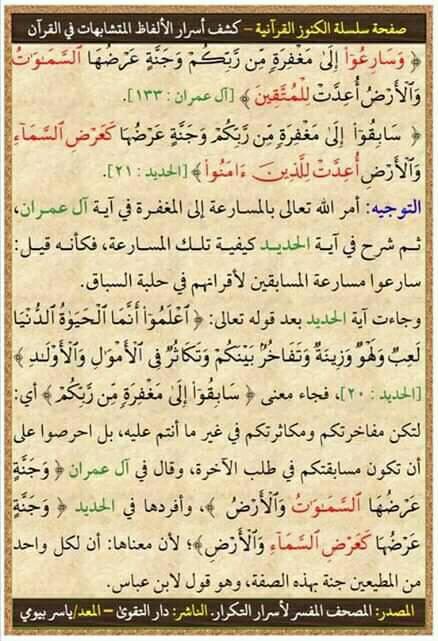 صفحة سلسلة الكنوز القرآنية – كشف أسرار الألفاظ المتشابهات في القرآن
﴿ وَسَارِعُوٓا۟ إِلَىٰ مَغْفِرَةٍ مِّن رَّبِّكُمْ وَجَنَّةٍ عَرْضُهَا ٱلسَّمَـٰوَٰتُ
وَٱلْأَرْضُ أُعِدَّتْ لِلْمُتَّقِينَ ﴾ [آل عمران : ١٣٣].
﴿ سَابِقُوٓا۟ إِلَىٰ مَغْفِرَةٍ مِّن رَّبِّكُمْ وَجَنَّةٍ عَرْضُهَا كَعَرْضِ ٱلسَّمَآءِ
وَٱلْأَرْضِ أُعِدَّتْ لِلَّذِينَ ءَامَنُوا۟ ﴾ [الحديد : ٢١].
التوجيه: أمر الله تعالى بالمسارعة إلى المغفرة في آية آل عمران،
ثم شرح في آية الحديد كيفية تلك المسارعة، فكأنه قيل:
سارعوا مسارعة المسابقين لأقرانهم في حلبة السباق.
وجاءت آية الحديد بعد قوله تعالى: ﴿ ٱعْلَمُوٓا۟ أَنَّمَا ٱلْحَيَوٰةُ ٱلدُّنْيَا
لَعِبٌ وَلَهْوٌ وَزِينَةٌ وَتَفَاخُرٌۢ بَيْنَكُمْ وَتَكَاثُرٌ فِى ٱلْأَمْوَٰلِ وَٱلْأَوْلَـٰدِ ﴾
[الحديد : ٢٠]، فجاء معنى ﴿ سَابِقُوٓا۟ إِلَىٰ مَغْفِرَةٍ مِّن رَّبِّكُمْ ﴾ أي:
لتكن مفاخرتكم ومكاثرتكم في غير ما أنتم عليه، بل احرصوا على
أن تكون مسابقتكم في طلب الآخرة، وقال في آل عمران ﴿ وَجَنَّةٍ
عَرْضُهَا ٱلسَّمَـٰوَٰتُ وَٱلْأَرْضُ ﴾، وأفردها في الحديد ﴿ وَجَنَّةٍ
عَرْضُهَا كَعَرْضِ ٱلسَّمَآءِ وَٱلْأَرْضِ ﴾؛ لأن معناها: أن لكل واحد
من المطيعين جنة بهذه الصفة، وهو قول لابن عباس.
المصدر: المصحف المفسر لأسرار التكرار. الناشر: دار التقوى – المعد/ياسر بيومي